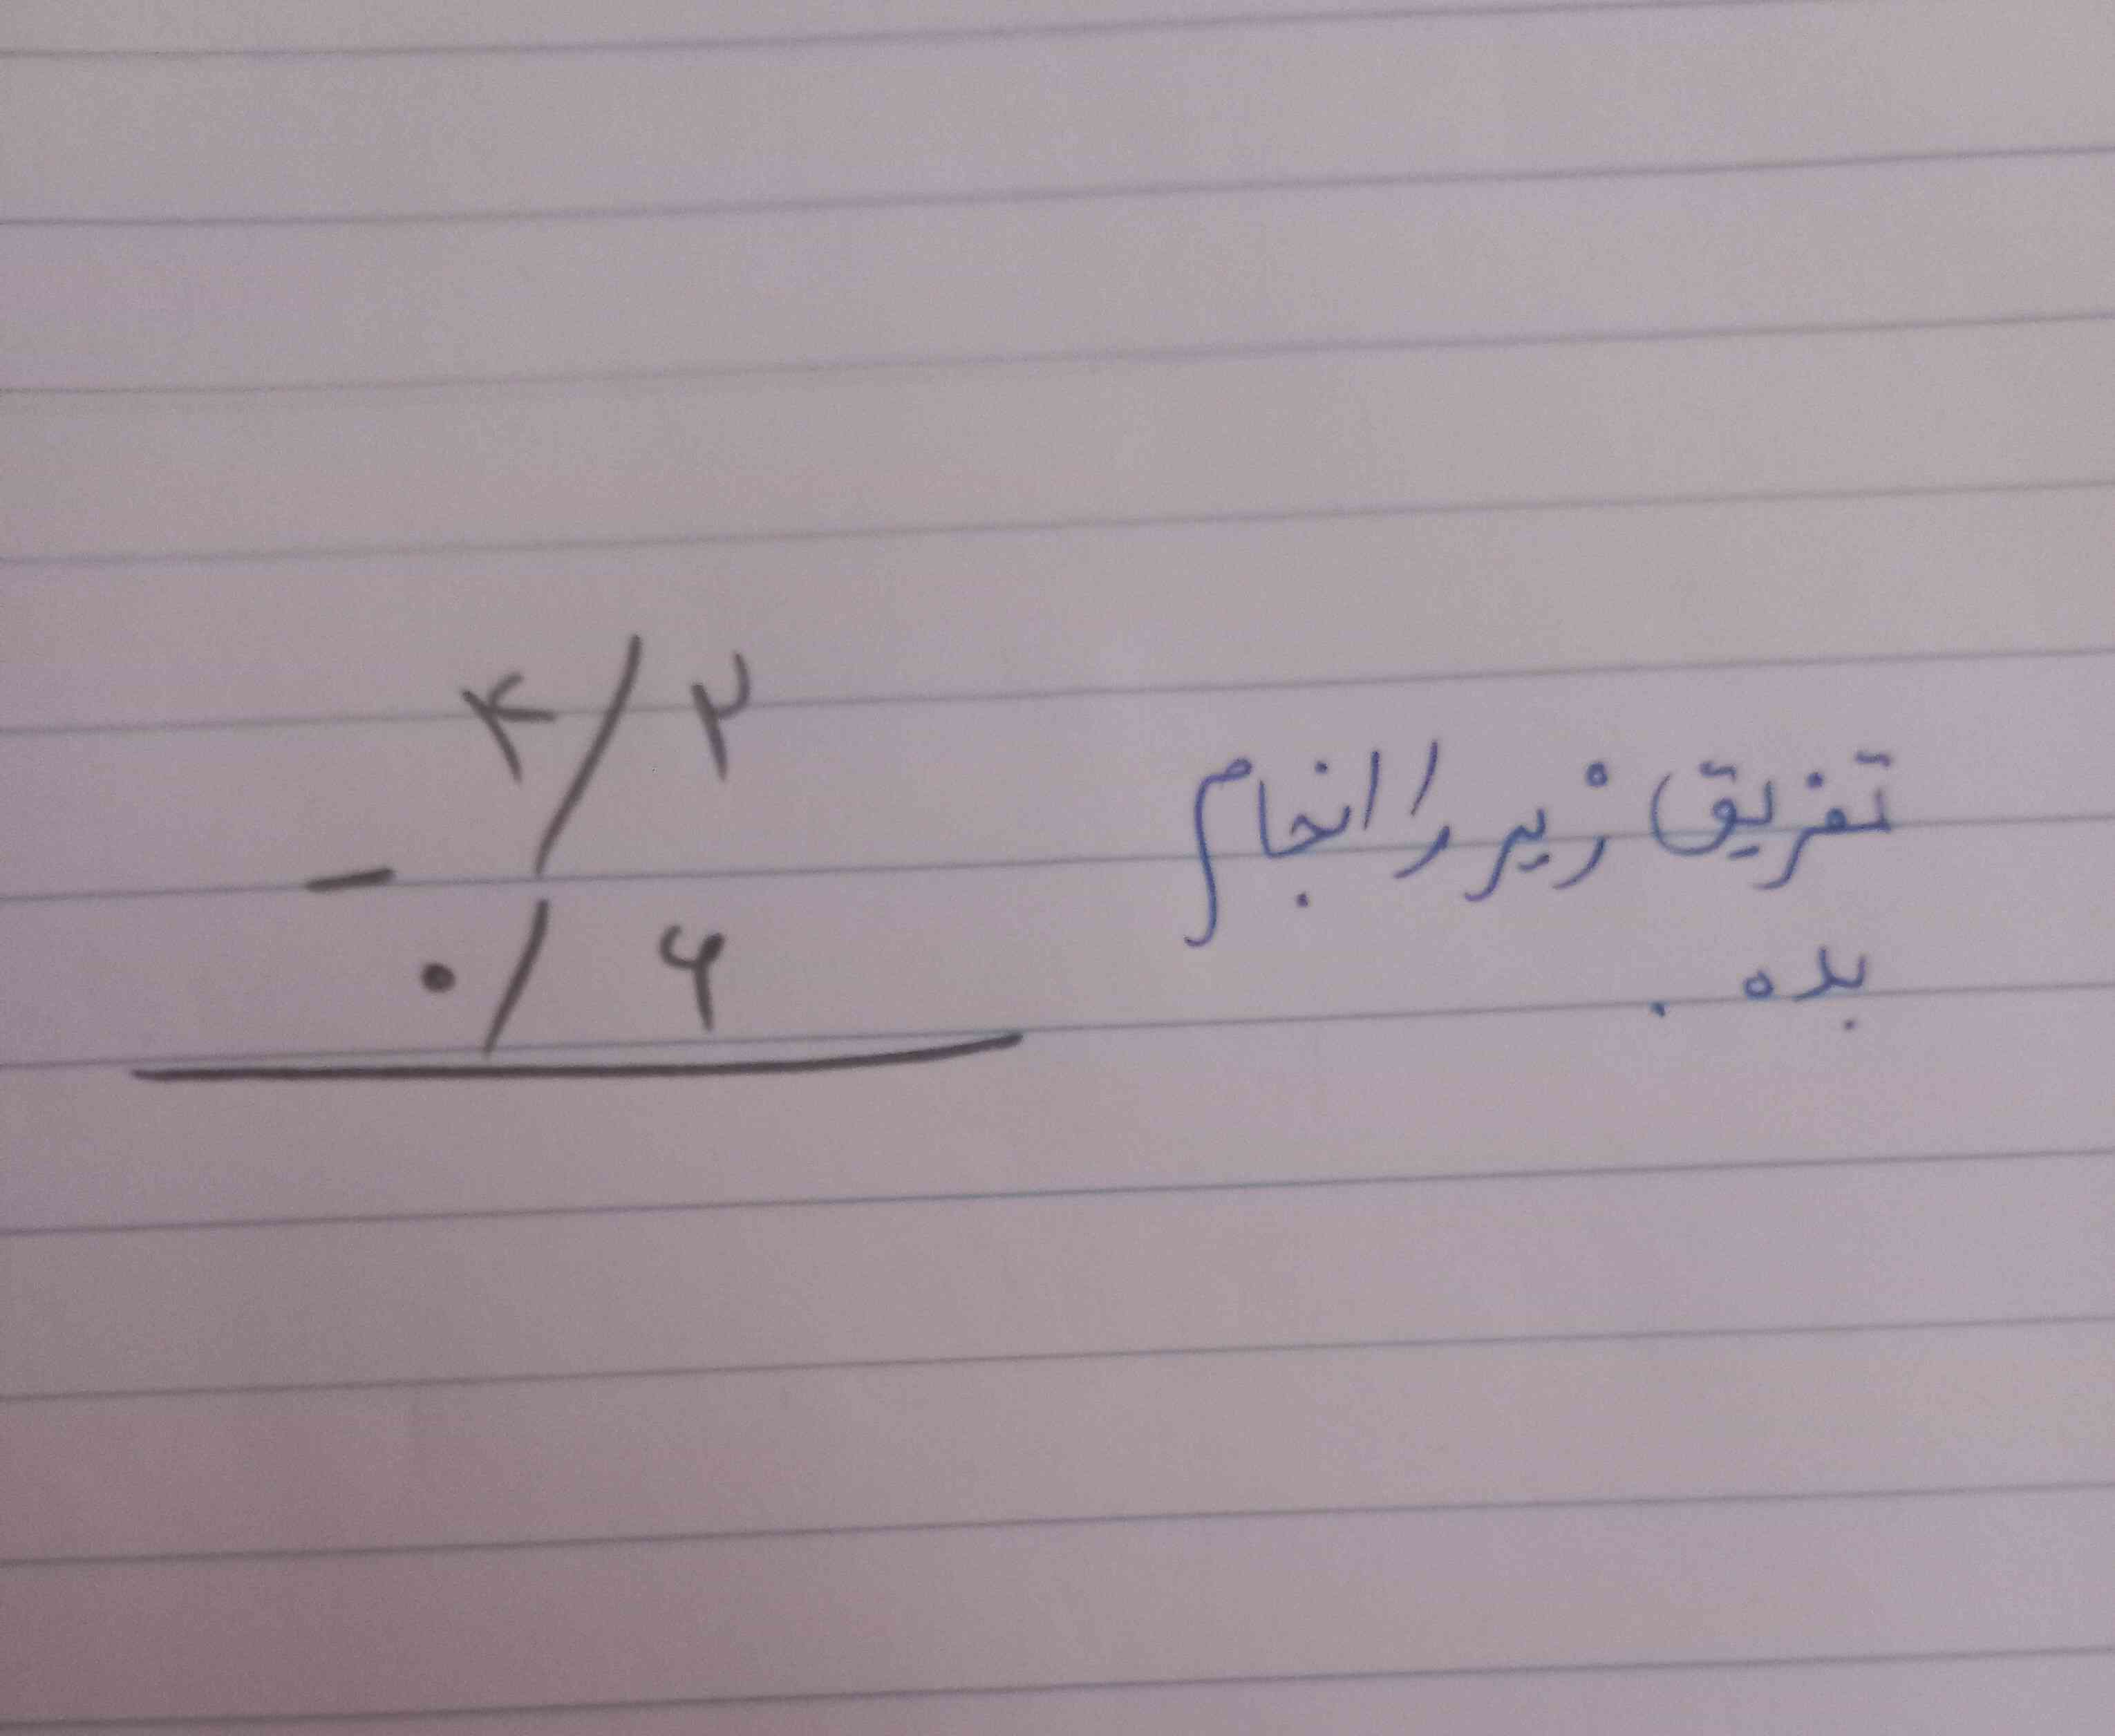 تفریق زیر را انجام
بده .
۴/۲
−
۰/۶